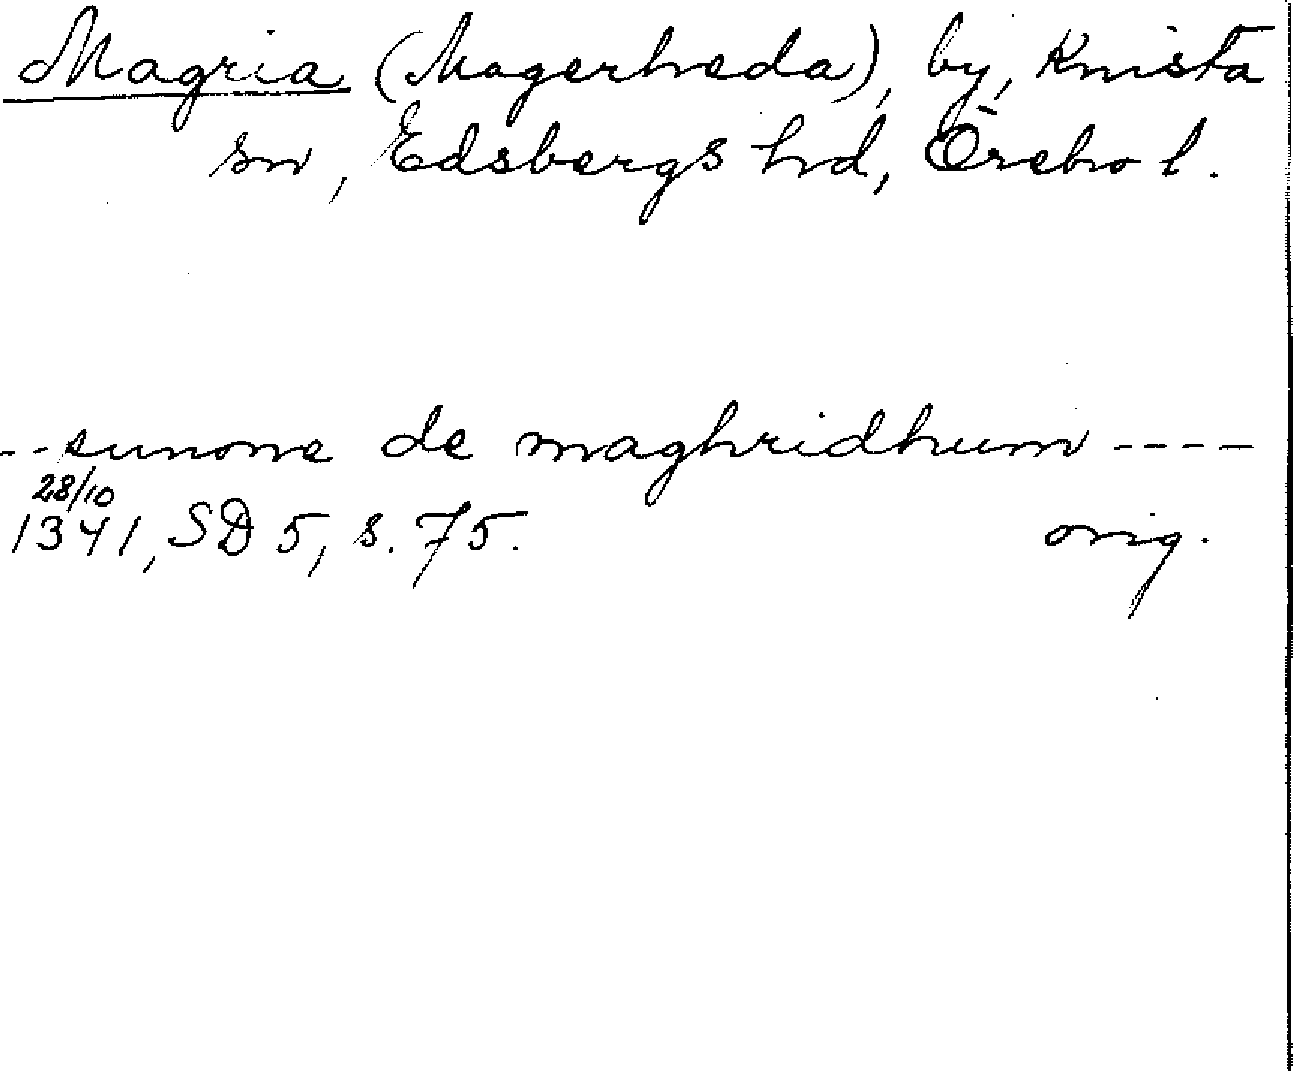 Magria (Magerheda), by, Knista
sn, Edsbergs hd, Örebro l.
--sunone de maghridhum ----
28/10
1341, SD 5, s. 75. orig.